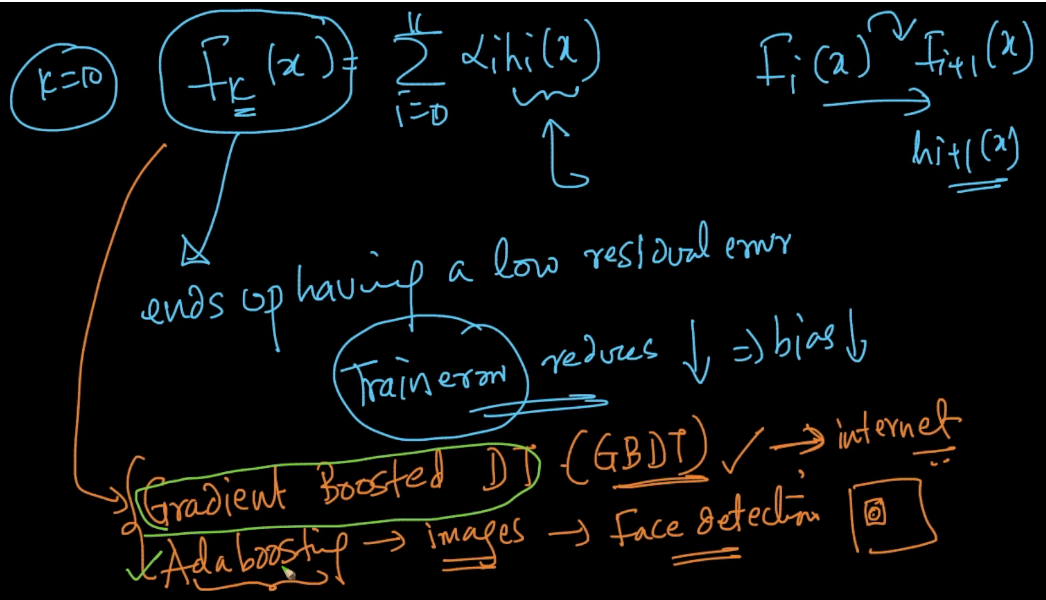 K=10 F_K(x) = Σ_{i=0}^{K} α_i h_i(x) F_i(x) F_{i+1}(x)
h_{i+1}(x)
ends up having a low residual error
Train error reduces ↓ ⇒ bias ↓
Gradient Boosted DT (GBDT) ✓ → internet
✓ Adaboosting → images → Face detection